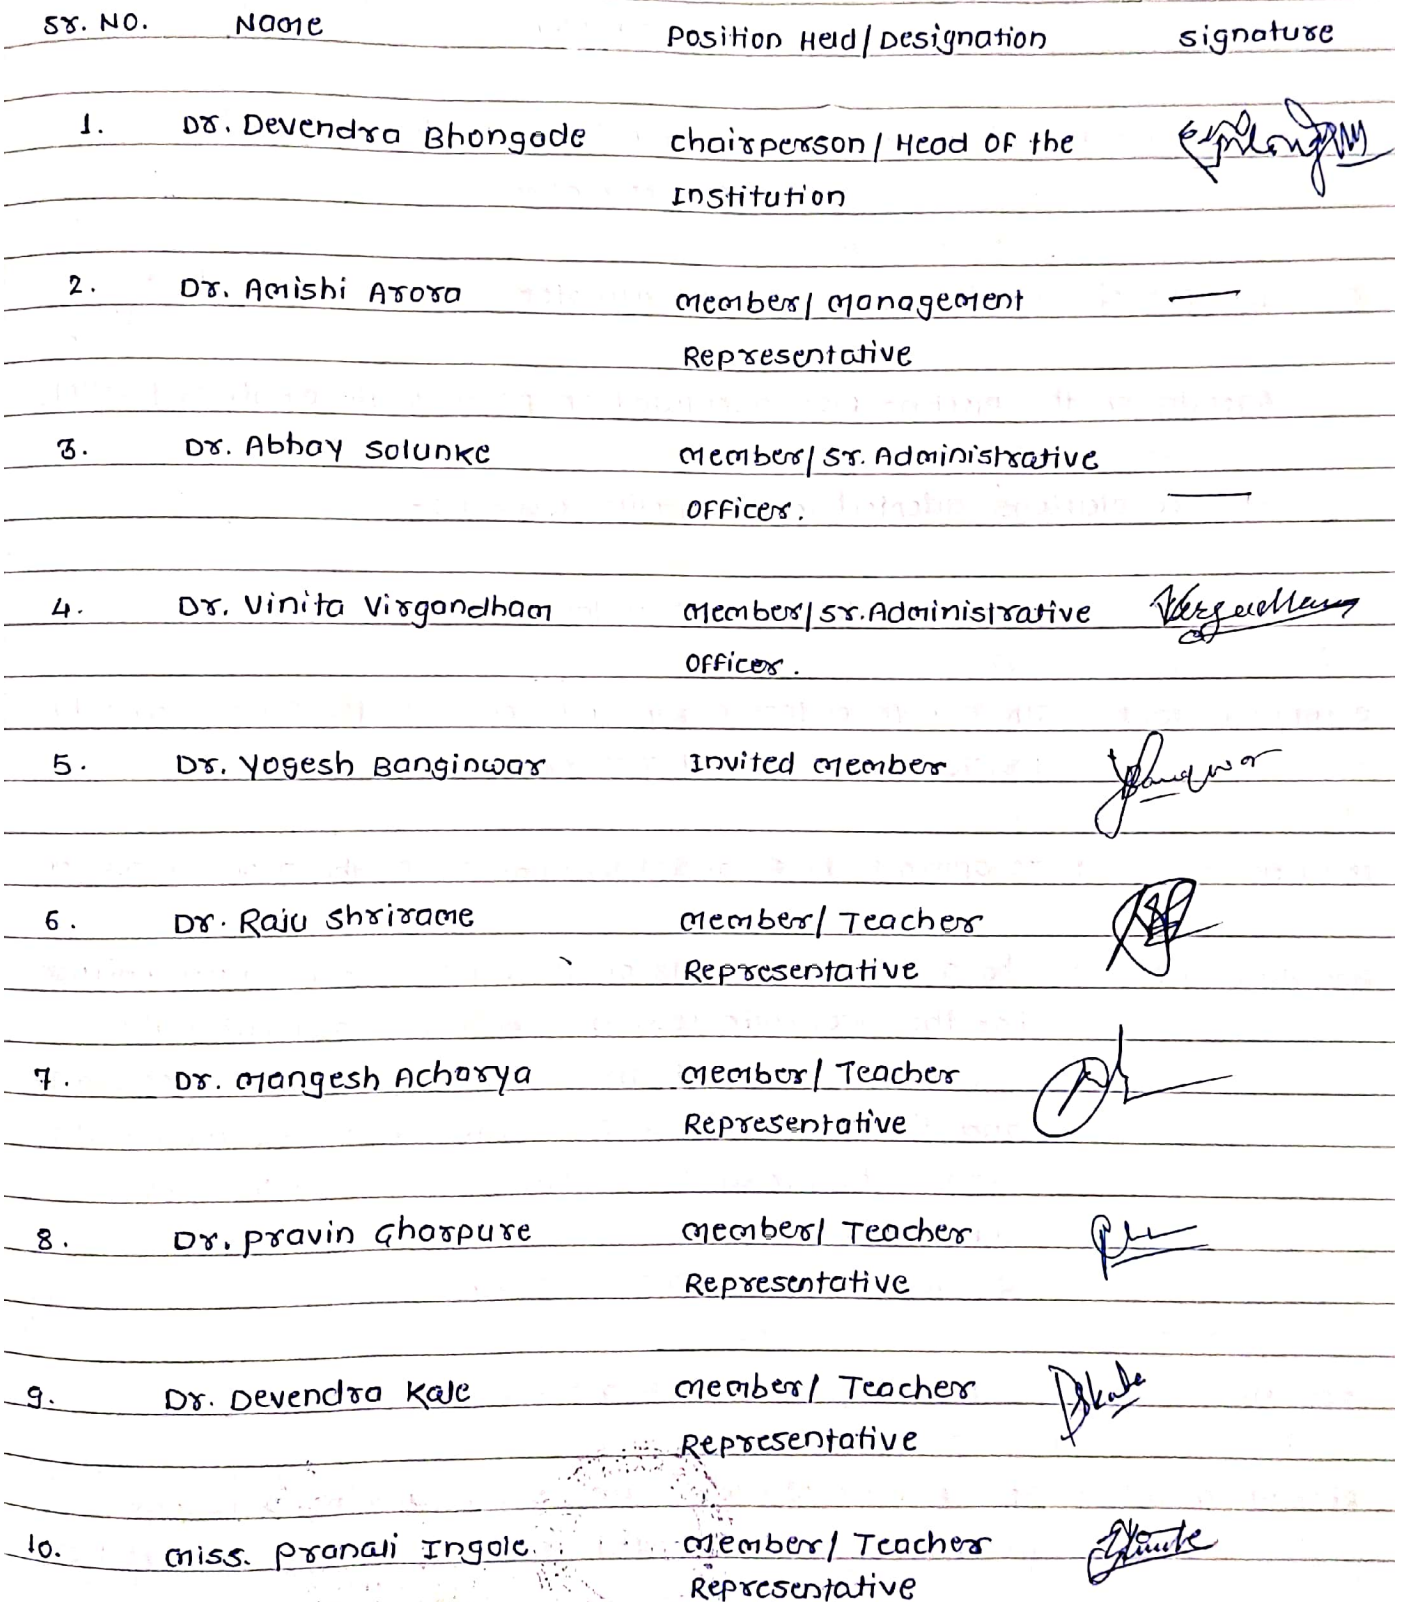 Sr. No. Name Position Held/Designation signature
1. Dr. Devendra Bhongade chairperson/Head of the
Institution
2. Dr. Amishi Arora member/management —
Representative
3. Dr. Abhay Solunke member/Sr. Administrative
Officer. —
4. Dr. Vinita Virgandham member/Sr. Administrative
Officer.
5. Dr. Yogesh Banginwar Invited member
6. Dr. Raju Shrirame member/Teacher
Representative
7. Dr. mangesh Acharya member/Teacher
Representative
8. Dr. Pravin Gharpure member/Teacher
Representative
9. Dr. Devendra Kale member/Teacher Dskale
Representative
10. miss. Pranali Ingole. member/Teacher
Representative